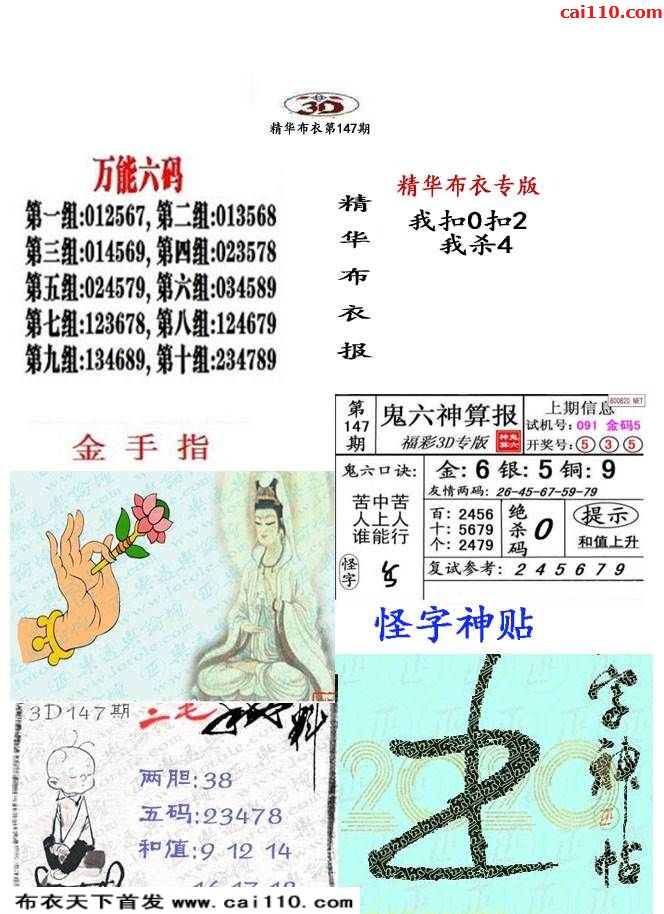 cai110.com
3D
精华布衣第147期
万能六码
第一组:012567, 第二组:013568
第三组:014569, 第四组:023578
第五组:024579, 第六组:034589
第七组:123678, 第八组:124679
第九组:134689, 第十组:234789
精华布衣报
精华布衣专版
我扣0扣2
我杀4
金手指
第147期
鬼六神算报
福彩3D专版
上期信息
800820 NET
试机号: 091 金码5
开奖号: 5 3 5
鬼六口诀:
苦中苦
人上人
谁能行
怪字
金: 6 银: 5 铜: 9
友情两码: 26-45-67-59-79
百: 2456
十: 5679
个: 2479
绝杀码 0
提示
和值上升
复试参考: 2 4 5 6 7 9
怪字神贴
3D147期
二毛
料
两胆:38
五码:23478
和值:9 12 14
字神帖
2020
布衣天下首发 www.cai110.com